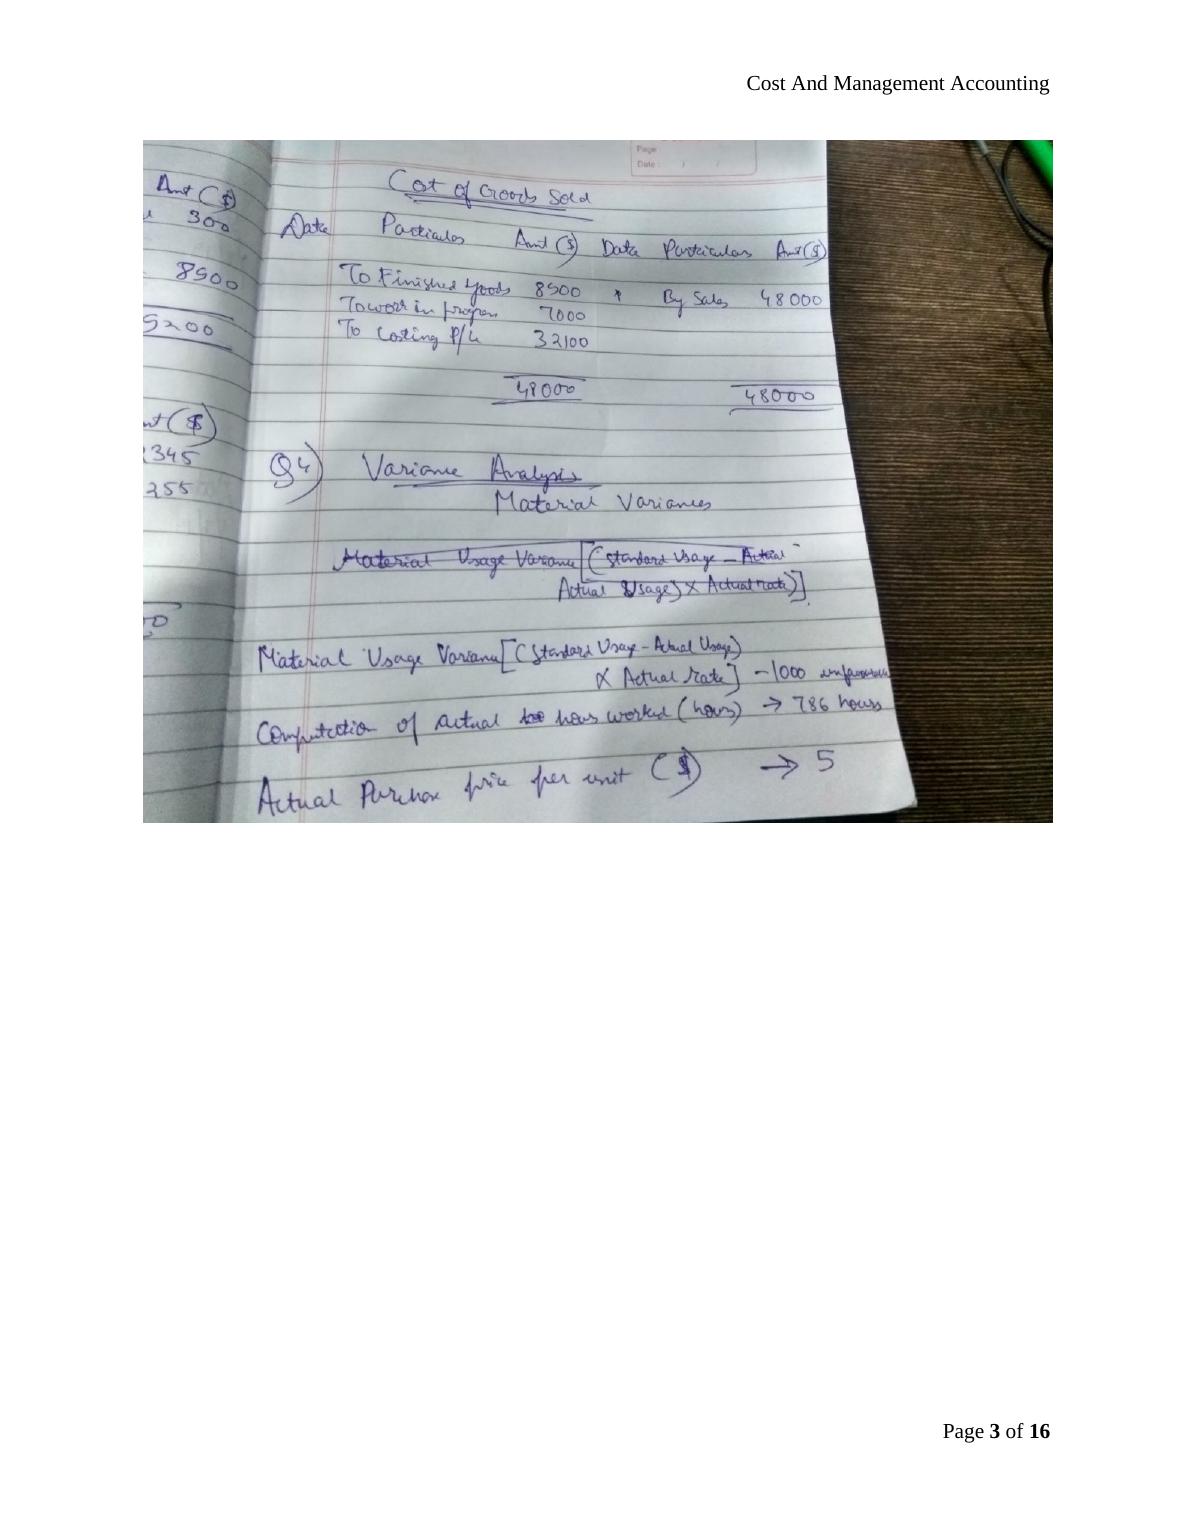 Cost And Management Accounting
Page
Date : / /
Amt ($)
300
8900
5200
nt ($)
345
255
Cost of Goods Sold
Date Particulas Amt ($) Data Particulars Amt ($)
To Finished goods 8900 By Sales 48000
To work in progress 7000
To Costing P/L 32100
48000 48000
Q4) Variance Analysis
Material Variances
Material Usage Variance [(Standard Usage - Actual
Actual Usage) X Actual rate)]
Material Usage Variance [(Standard Usage - Actual Usage)
X Actual rate] -1000
Computation of actual hours worked (hours) → 786 hours
Actual Purchase price per unit ($) → 5
Page 3 of 16